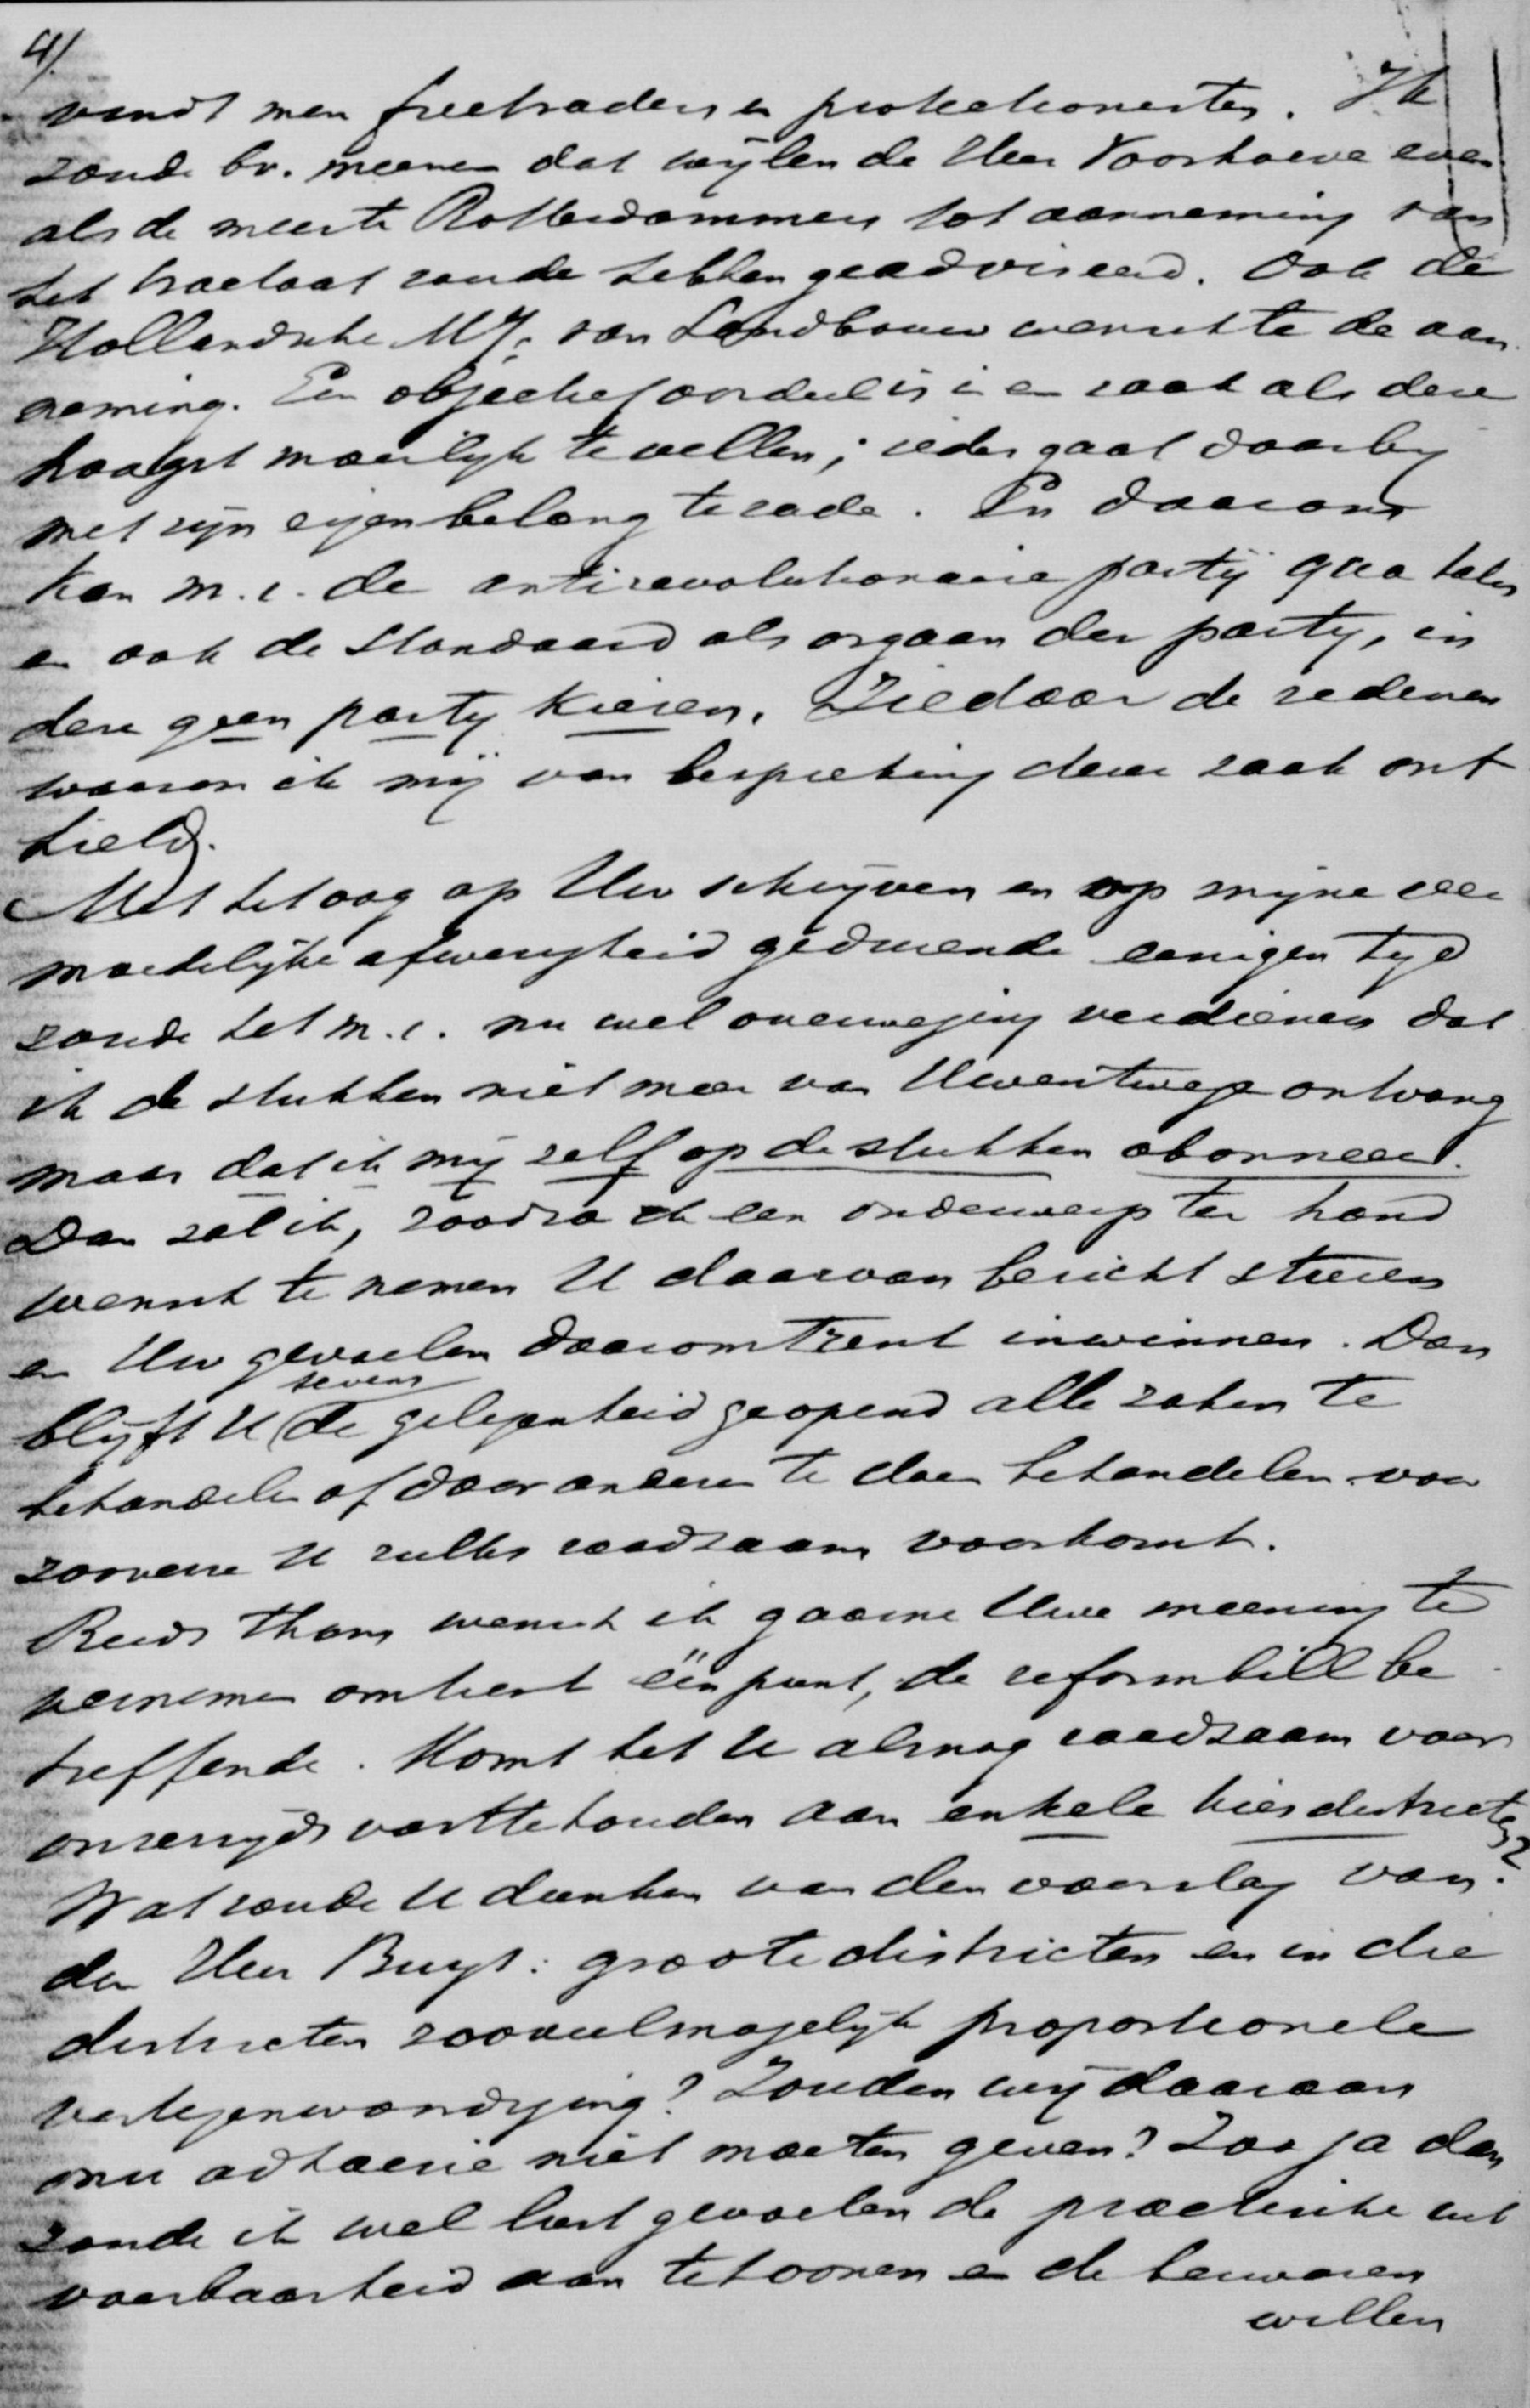 4/.
vindt men freetraders en protectionisten. Ik
zoude bv. meenen dat wijlen de Heer Voorhoeve even
als de meeste Rotterdammers tot aanneming van
het tractaat zoude hebben geadviseerd. Ook de
Hollandsche Mij. van Landbouw wenschte de aan
neming. Een objectief oordeel is in een zaak als deze
hoogst moeilijk te vellen; ieder gaat daarbij
met zijn eigenbelang te rade. En daarom
kan m.i. de antirevolutionaire partij qua talis
en ook de Standaard als orgaan der partij, in
deze geen partij kiezen. Ziedaar de redenen
waarom ik mij van bespreking dezer zaak ont
hield.
Met het oog op Uw schrijven en op mijne ver
moedelijke afwezigheid gedurende eenigen tijd
zoude het m.i. nu wel overweging verdienen dat
ik de stukken niet meer van Uwentwege ontvang
maar dat ik mij zelf op de stukken abonneer.
Dan zal ik, zoodra ik een onderwerp ter hand
wensch te nemen U daarvan bericht sturen
en Uw gevoelen daaromtrent inwinnen. Dan
blijft U tevens de gelegenheid geopend alle zaken te
behandelen of door anderen te doen behandelen voor
zooverre U zulks raadzaam voorkomt.
Reeds thans wensch ik gaarne Uwe meening te
vernemen omtrent één punt, de reformbill be
treffende. Komt het U alsnog raadzaam voor
onzerzijds vasttehouden aan enkele kiesdistricten?
Wat zoude U dunken van den voorslag van
den Heer Buys: groote districten en in die
districten zooveelmogelijk proportioneele
vertegenwoordiging? Zouden wij daaraan
onze adhaesie niet moeten geven? Zoo ja dan
zoude ik wel lust gevoelen de practische uit
voerbaarheid aan te toonen en de bezwaren
willen